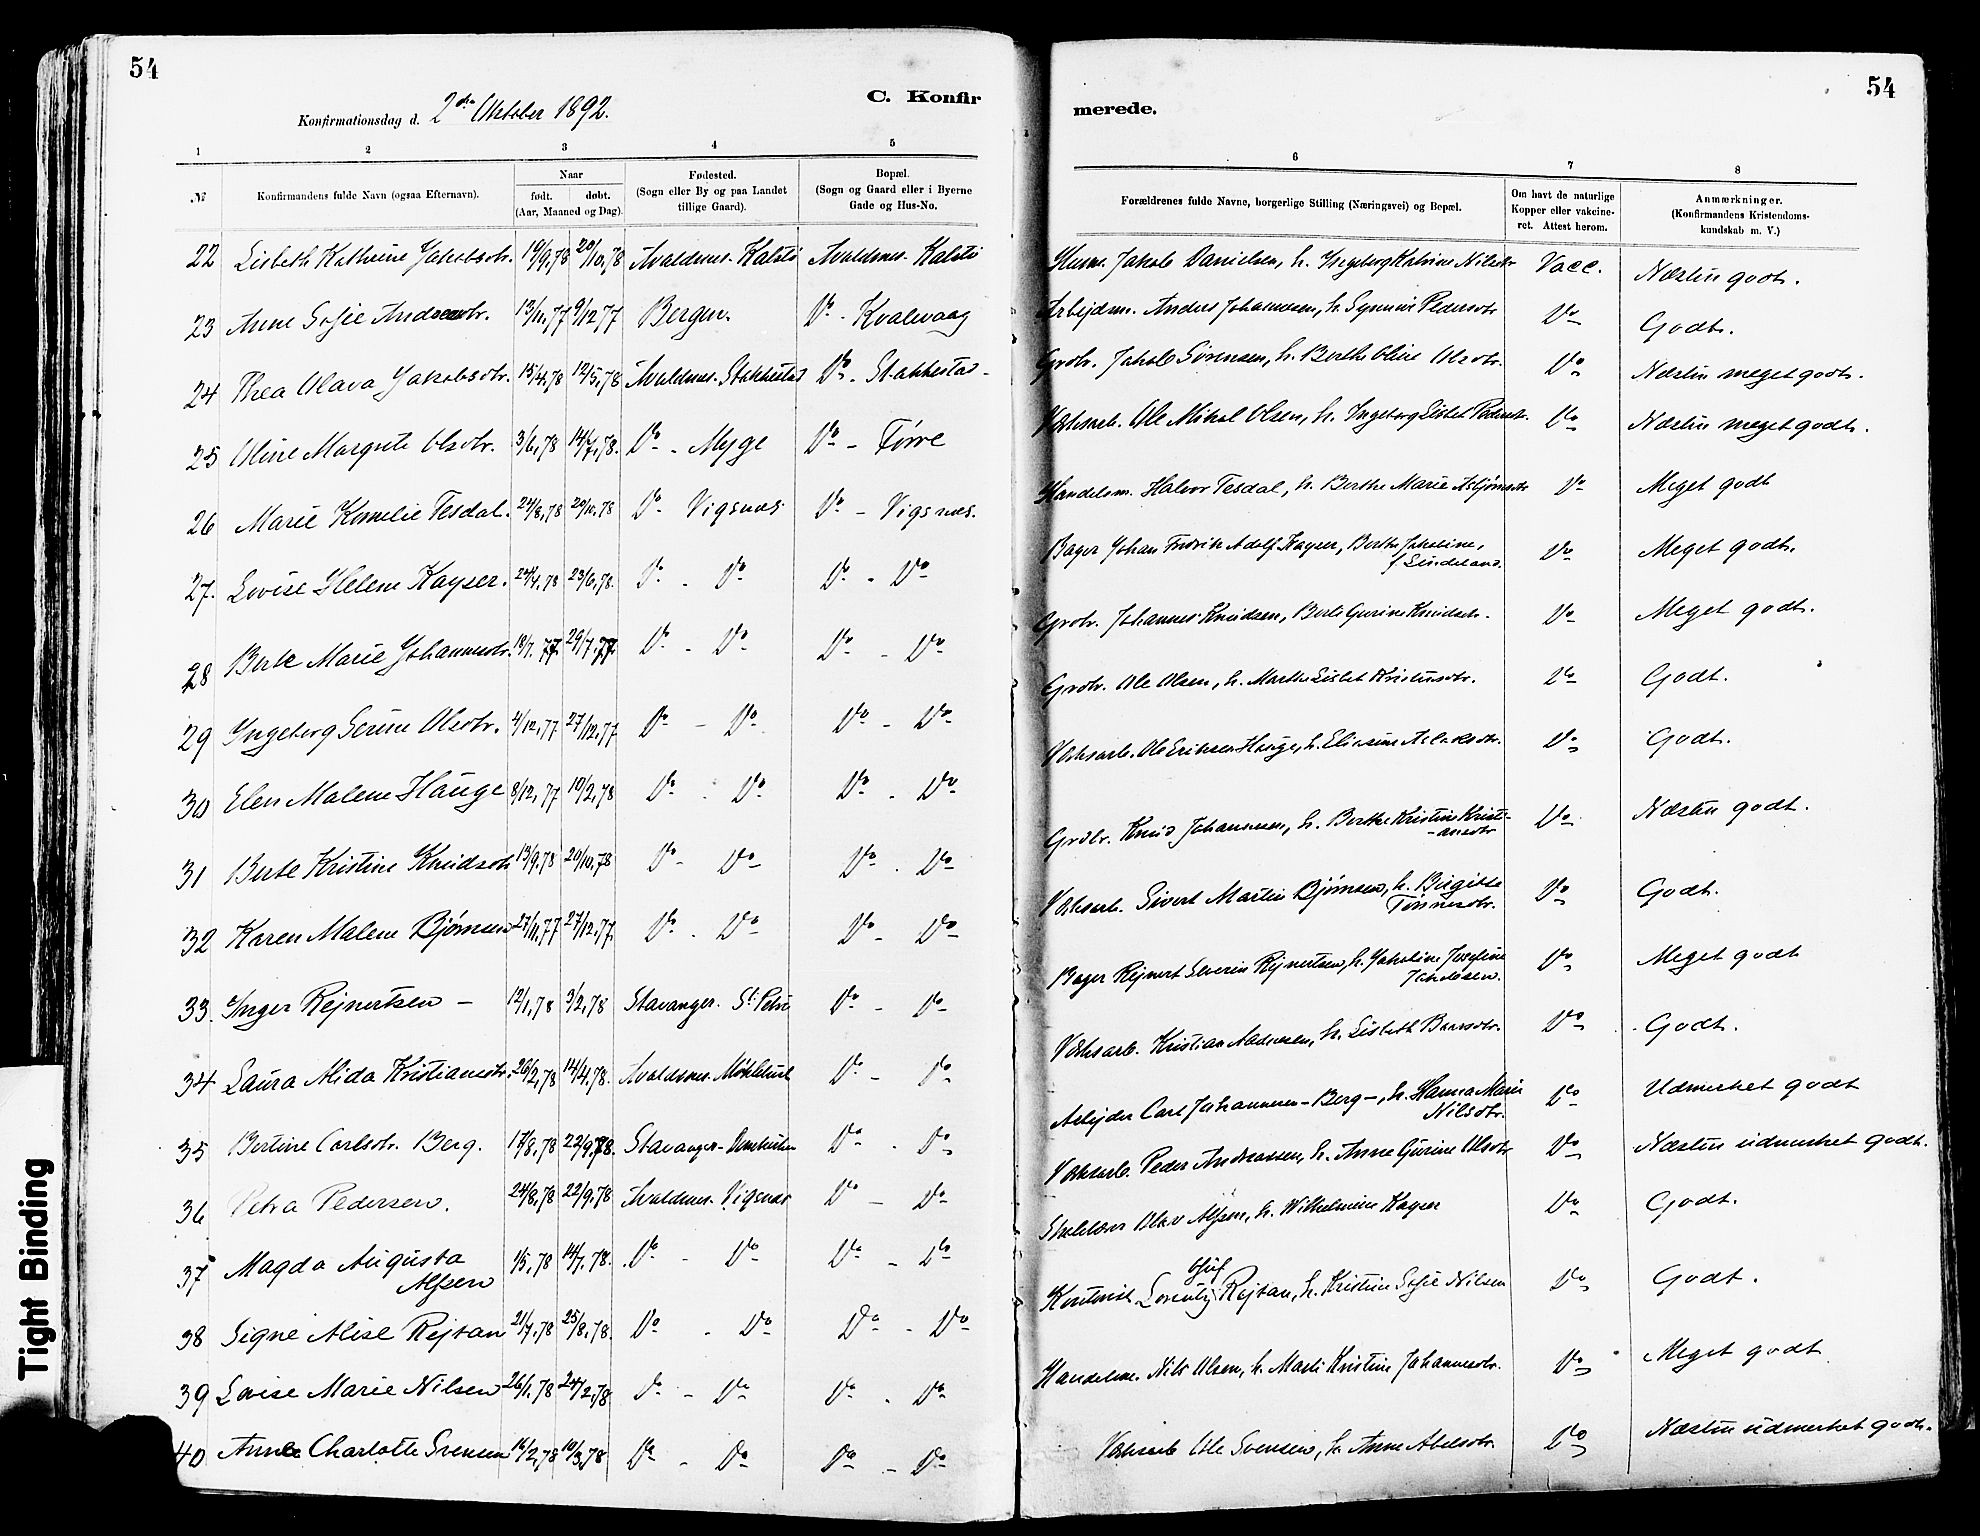 54
54
C. Konfir
merede.
Konfirmationsdag d. 2den Oktober 1892.
1 2 3 4 5 6 7 8
№ Konfirmandens fulde Navn (ogsaa Efternavn). Naar født. døbt. (Aar, Maaned og Dag). Fødested. (Sogn eller By og paa Landet tillige Gaard). Bopæl. (Sogn og Gaard eller i Byerne Gade og Hus-No. Forældrenes fulde Navne, borgerlige Stilling (Næringsvei) og Bopæl. Om havt de naturlige Kopper eller vakcineret. Attest herom. Anmærkninger. (Konfirmandens Kristendomskundskab m. V.)
22 Lisbeth Kathrine Jakobsdtr. 19/9,78 20/10,78 Avaldsnes. Kalstø Avaldsnes. Kalstø Husm. Jakob Danielsen, h. Ingeborg Katrine Nilsdtr Vacc. Næsten godt.
23 Anne Sofie Andersdtr. 13/11,77 9/12 77 Bergen. Do - Kvalevaag Arbejdsm. Anders Johannesen, h. Synnøve Pedersdtr Do Godt.
24 Thea Olava Jakobsdtr. 15/4,78 12/5,78 Avaldsnes. Stakkestad Do - Stakkestad - Grdbr. Jakob Sørensen, h. Berthe Oline Olsdtr. Do Næsten meget godt.
25 Oline Margrete Olsdtr. 3/6,78 14/7,78. Do - Myge Do - Førre Værksarb. Ole Mikal Olsen, h. Ingeborg Lisbet Pedersdtr. Do Næsten meget godt.
26 Marie Kornelie Tesdal. 24/8,78 29/10,78 Do Vigsnæs Do - Vigsnæs. Handelsm. Halvor Tesdal, h. Berthe Marie Asbjørnsdtr Do Meget godt
27. Lovise Helene Kayser. 24/4,78 23/6,78. Do - Do Do - Do Bager Johan Fredrik Adolf Kayser, Berthe Jakobine, f. Lindeland. Do Meget godt.
28 Berte Marie Johannesdtr. 18/7. 77. 29/7.77. Do - Do Do - Do Grdbr. Johannes Knudsen, Berte Gurine Knudsdtr. Do Meget godt.
29 Ingeborg Serine Olsdtr. 4/12,77 27/12,77 Do - Do Do - Do Grdbr. Ole Olsen, h. Marthe Lisbet Kristensdtr. Do Godt.
30 Elen Malene Hauge 8/12,77 10/2,78 Do - Do Do - Do Værksarb. Ole Eriksen Hauge, h. Elisine Aslaksdtr. Do Godt.
31 Berte Kristine Knudsdtr 13/9,78 20/10,78 Do - Do Do - Do Grdbr. Knud Johannesen, h. Berthe Kristine Kristiansdtr Do Næsten godt.
32 Karen Malene Bjørnsen 27/11,77 27/12.77. Do - Do Do - Do Værksarb. Sivert Martin Bjørnsen, h. Birgitte Tønnesdtr. Do Godt.
33. Inger Rejnertsen - 12/1,78 3/2,78 Stavanger. St. Petri Do - Do Bager Rejnert Severin Rejnertsen, h. Jakobine Josefine Jakobsen. Do Meget godt
34 Laura Alida Kristiansdtr. 26/2,78 14/4,78. Avaldsnes. Do - Do Værksarb. Kristian Andersen, h. Lisbeth Do Godt.
35 Bertine Carlsdtr. Berg. 17/8,78 22/9.78. Stavanger- Domkirken Do - Do Arbejder Carl Johannesen - Berg -, h. Hanna Marie Nilsdtr. Do Udmerket godt
36 Petra Pedersen. 24/8,78 22/9,78 Avaldsnes. Vigsnæs Do - Do Værksarb. Peder Andreassen, h. Anne Gurine Olsdtr Do Næsten udmerket godt.
37 Magda Augusta Alfsen 1/5,78 14/7.78. Do - Do Do - Do Olav Alfsen, h. Wilhelmine Kayser Do Godt.
38 Signe Alise Rejtan 21/7,78 25/8,78. Do - Do Do - Do Kontorist Rejtan, h. Kristine Sofie Nilsen Do Godt.
39 Lovise Marie Nilsen 26/1,78 24/2,78 Do - Do Do - Do Handelsm. Nils Olsen, h. Marte Kristine Johannesdtr. Do Meget godt
40 Anne Charlotte Svensen 16/2,78 10/3,78 Do - Do Do - Do Værksarb Ole Svensen, h. Anne Abelsdtr. Do Næsten udmerket godt.
Tight Binding